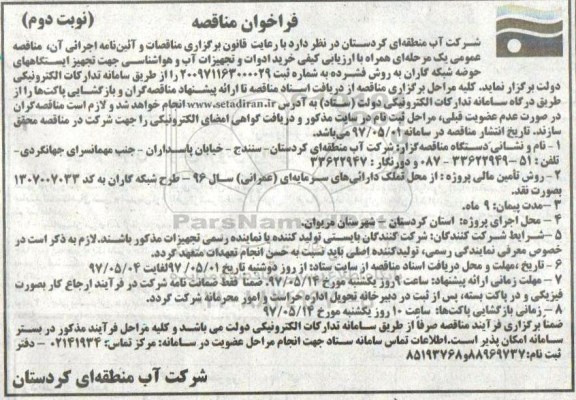 فراخوان مناقصه (نوبت دوم)
شرکت آب منطقه‌ای کردستان در نظر دارد با رعایت قانون برگزاری مناقصات و آئین‌نامه اجرائی آن، مناقصه
عمومی یک مرحله‌ای همراه با ارزیابی کیفی خرید ادوات و تجهیزات آب و هواشناسی جهت تجهیز ایستگاههای
حوضه شبکه گاران به روش فشرده به شماره ثبت ۲۰۰۹۷۱۱۶۳۰۰۰۰۲۹ را از طریق سامانه تدارکات الکترونیکی
دولت برگزار نماید. کلیه مراحل برگزاری مناقصه از دریافت اسناد مناقصه تا ارائه پیشنهاد مناقصه‌گران و بازگشایی پاکت‌ها را از
طریق درگاه سامانه تدارکات الکترونیکی دولت (ستاد) به آدرس www.setadiran.ir انجام خواهد شد و لازم است مناقصه‌گران
در صورت عدم عضویت قبلی، مراحل ثبت نام در سایت مذکور و دریافت گواهی امضای الکترونیکی را جهت شرکت در مناقصه محقق
سازند. تاریخ انتشار مناقصه در سامانه ۹۷/۰۵/۰۱ می‌باشد.
۱ - نام و نشانی دستگاه مناقصه‌گزار: شرکت آب منطقه‌ای کردستان- سنندج - خیابان پاسداران - جنب مهمانسرای جهانگردی-
تلفن: ۵۱ - ۳۳۶۲۲۹۴۹ - ۰۸۷ و دورنگار : ۳۳۶۲۲۹۴۷
۲ - روش تأمین مالی پروژه : از محل تملک دارائی‌های سرمایه‌ای (عمرانی) سال ۹۶ - طرح شبکه گاران به کد ۱۳۰۷۰۰۷۰۳۳
بصورت نقد.
۳ -مدت پیمان: ۹ ماه.
۴ - محل اجرای پروژه: استان کردستان - شهرستان مریوان.
۵ -شرایط شرکت کنندگان: شرکت کنندگان بایستی تولید کننده یا نماینده رسمی تجهیزات مذکور باشند. لازم به ذکر است در
خصوص معرفی نمایندگی رسمی، تولیدکننده اصلی باید نسبت به حسن انجام تعهدات متعهد گردد.
۶ - تاریخ ،مهلت و محل دریافت اسناد مناقصه از سایت ستاد: از روز دوشنبه تاریخ ۹۷/۰۵/۰۱ لغایت ۹۷/۰۵/۰۴
۷ - مهلت زمانی ارائه پیشنهاد: ساعت ۹ روز یکشنبه مورخ ۹۷/۰۵/۱۴. ضمنا فقط ضمانت نامه شرکت در فرآیند ارجاع کار بصورت
فیزیکی و در پاکت بسته، پس از ثبت در دبیرخانه تحویل اداره حراست و امور محرمانه شرکت گردد.
۸ - زمانی بازگشایی پاکت‌ها: ساعت ۱۰ روز یکشنبه مورخ ۹۷/۰۵/۱۴
ضمنا برگزاری فرآیند مناقصه صرفا از طریق سامانه تدارکات الکترونیکی دولت می باشد و کلیه مراحل فرآیند مذکور در بستر
سامانه امکان پذیر است.اطلاعات تماس سامانه ستاد جهت انجام مراحل عضویت در سامانه: مرکز تماس: ۰۲۱۴۱۹۳۴ - دفتر
ثبت نام: ۸۸۹۶۹۷۳۷ و ۸۵۱۹۳۷۶۸
شرکت آب منطقه‌ای کردستان